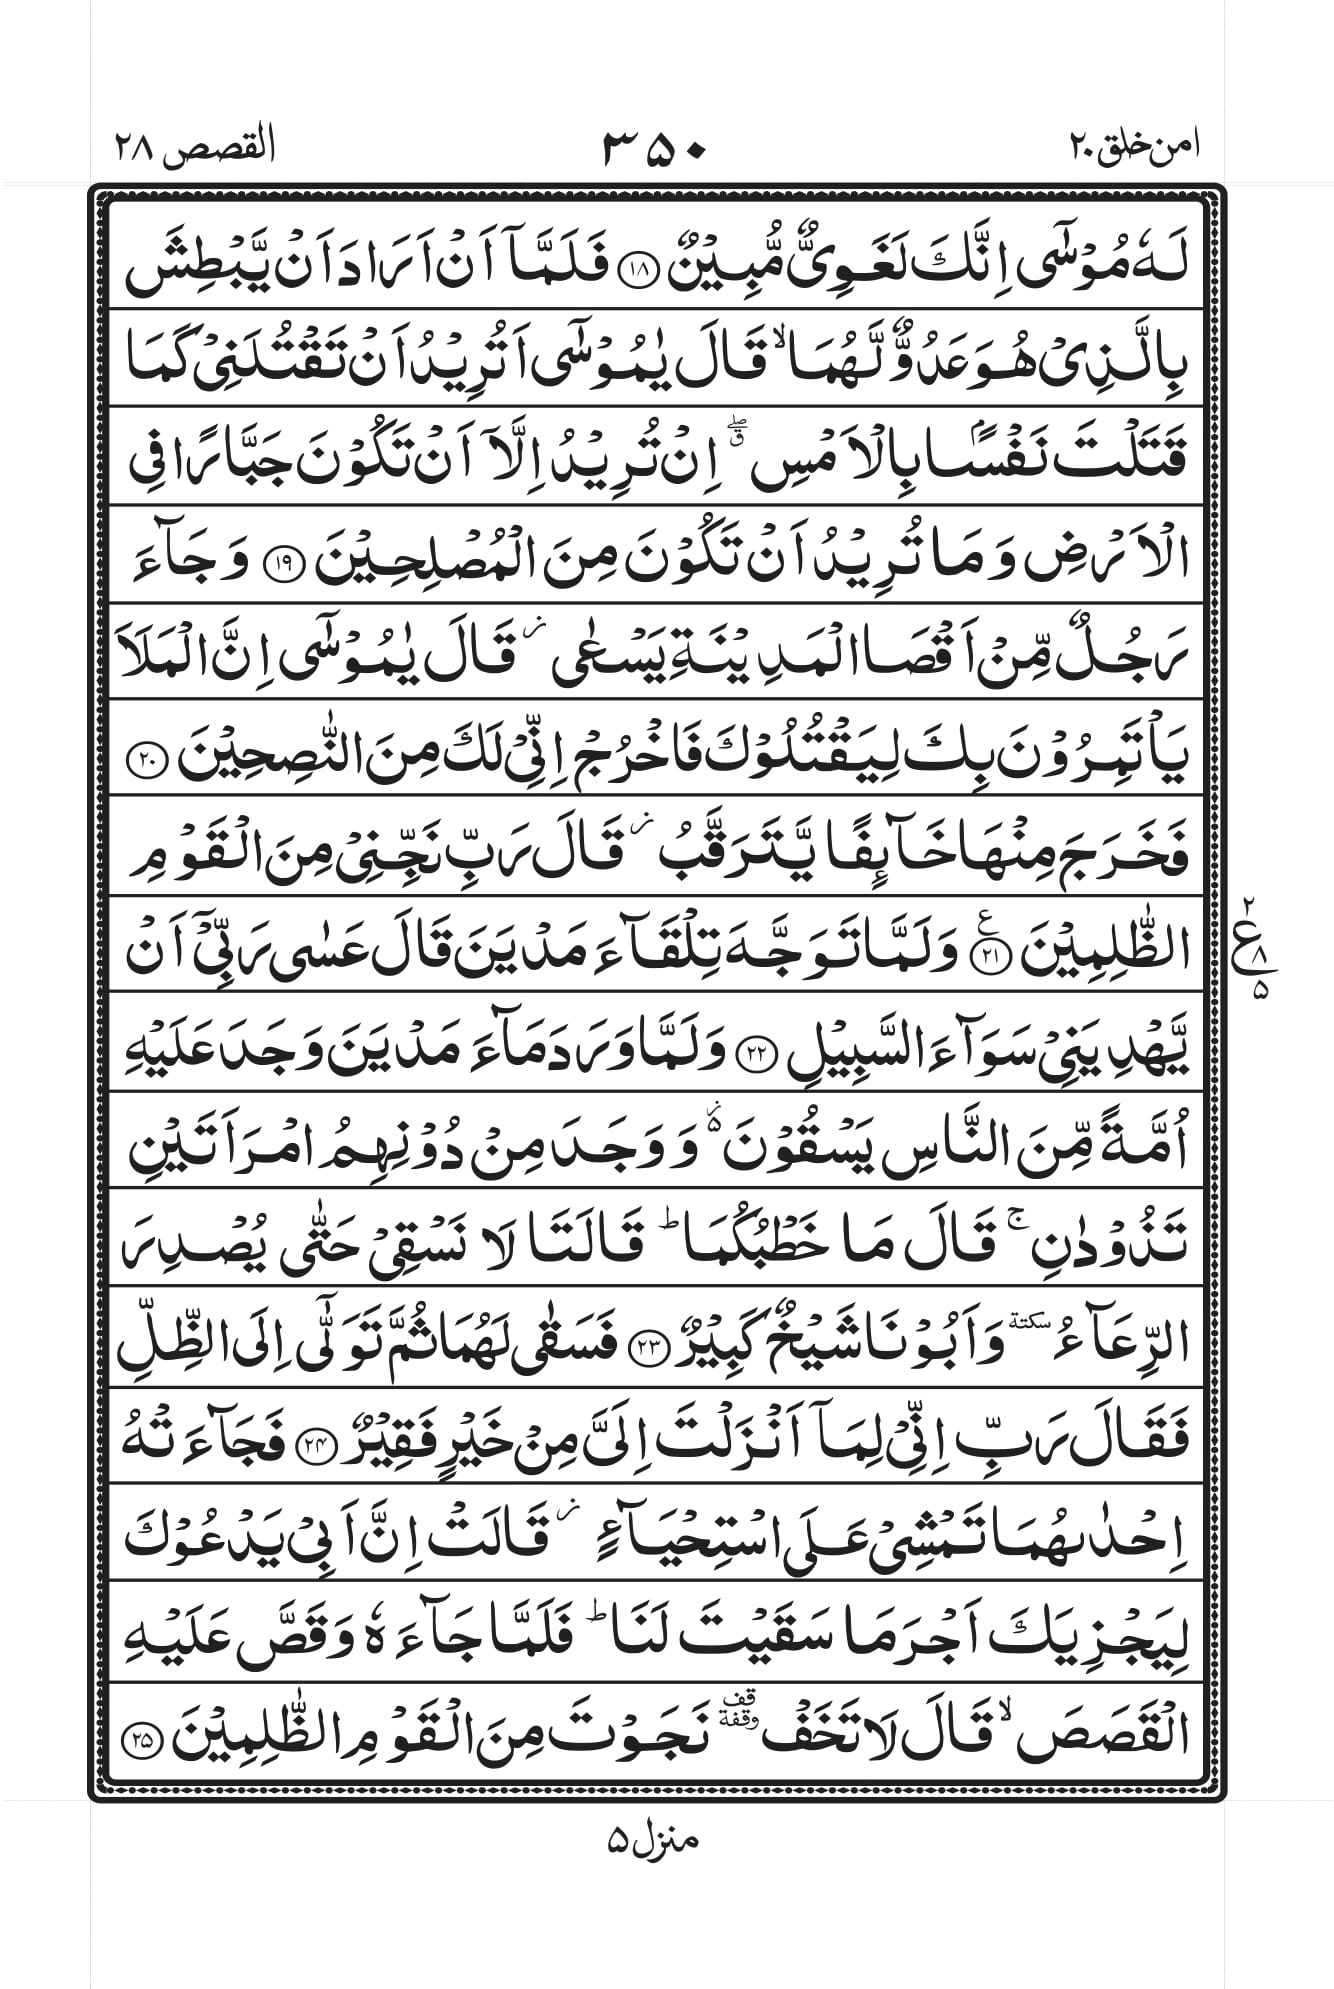 امن خلق ۲۰ ۳۵۰ القصص ۲۸
لَهٗ مُوْسٰۤى اِنَّكَ لَغَوِىٌّ مُّبِيْنٌ ۝۱۸ فَلَمَّاۤ اَنْ اَرَادَ اَنْ يَّبْطِشَ
بِالَّذِىْ هُوَ عَدُوٌّ لَّهُمَا ۙ قَالَ يٰمُوْسٰۤى اَتُرِيْدُ اَنْ تَقْتُلَنِىْ كَمَا
قَتَلْتَ نَفْسًۢا بِالْاَمْسِ ۖق اِنْ تُرِيْدُ اِلَّاۤ اَنْ تَكُوْنَ جَبَّارًا فِى
الْاَرْضِ وَمَا تُرِيْدُ اَنْ تَكُوْنَ مِنَ الْمُصْلِحِيْنَ ۝۱۹ وَجَآءَ
رَجُلٌ مِّنْ اَقْصَا الْمَدِيْنَةِ يَسْعٰى ز قَالَ يٰمُوْسٰۤى اِنَّ الْمَلَاَ
يَاْتَمِرُوْنَ بِكَ لِيَقْتُلُوْكَ فَاخْرُجْ اِنِّىْ لَكَ مِنَ النّٰصِحِيْنَ ۝۲۰
فَخَرَجَ مِنْهَا خَآئِفًا يَّتَرَقَّبُ ز قَالَ رَبِّ نَجِّنِىْ مِنَ الْقَوْمِ
الظّٰلِمِيْنَ ۝۲۱ ع وَلَمَّا تَوَجَّهَ تِلْقَآءَ مَدْيَنَ قَالَ عَسٰى رَبِّىْۤ اَنْ
۲ ع ۸ ۵
يَّهْدِيَنِىْ سَوَآءَ السَّبِيْلِ ۝۲۲ وَلَمَّا وَرَدَ مَآءَ مَدْيَنَ وَجَدَ عَلَيْهِ
اُمَّةً مِّنَ النَّاسِ يَسْقُوْنَ ۵ز وَوَجَدَ مِنْ دُوْنِهِمُ امْرَاَتَيْنِ
تَذُوْدٰنِ ۚ قَالَ مَا خَطْبُكُمَا ؕ قَالَتَا لَا نَسْقِىْ حَتّٰى يُصْدِرَ
الرِّعَآءُ سكتة وَاَبُوْنَا شَيْخٌ كَبِيْرٌ ۝۲۳ فَسَقٰى لَهُمَا ثُمَّ تَوَلّٰۤى اِلَى الظِّلِّ
فَقَالَ رَبِّ اِنِّىْ لِمَاۤ اَنْزَلْتَ اِلَىَّ مِنْ خَيْرٍ فَقِيْرٌ ۝۲۴ فَجَآءَتْهُ
اِحْدٰىهُمَا تَمْشِىْ عَلَى اسْتِحْيَآءٍ ز قَالَتْ اِنَّ اَبِىْ يَدْعُوْكَ
لِيَجْزِيَكَ اَجْرَ مَا سَقَيْتَ لَنَا ؕ فَلَمَّا جَآءَهٗ وَقَصَّ عَلَيْهِ
الْقَصَصَ ۙ قَالَ لَا تَخَفْ قف وقفة نَجَوْتَ مِنَ الْقَوْمِ الظّٰلِمِيْنَ ۝۲۵
منزل ۵